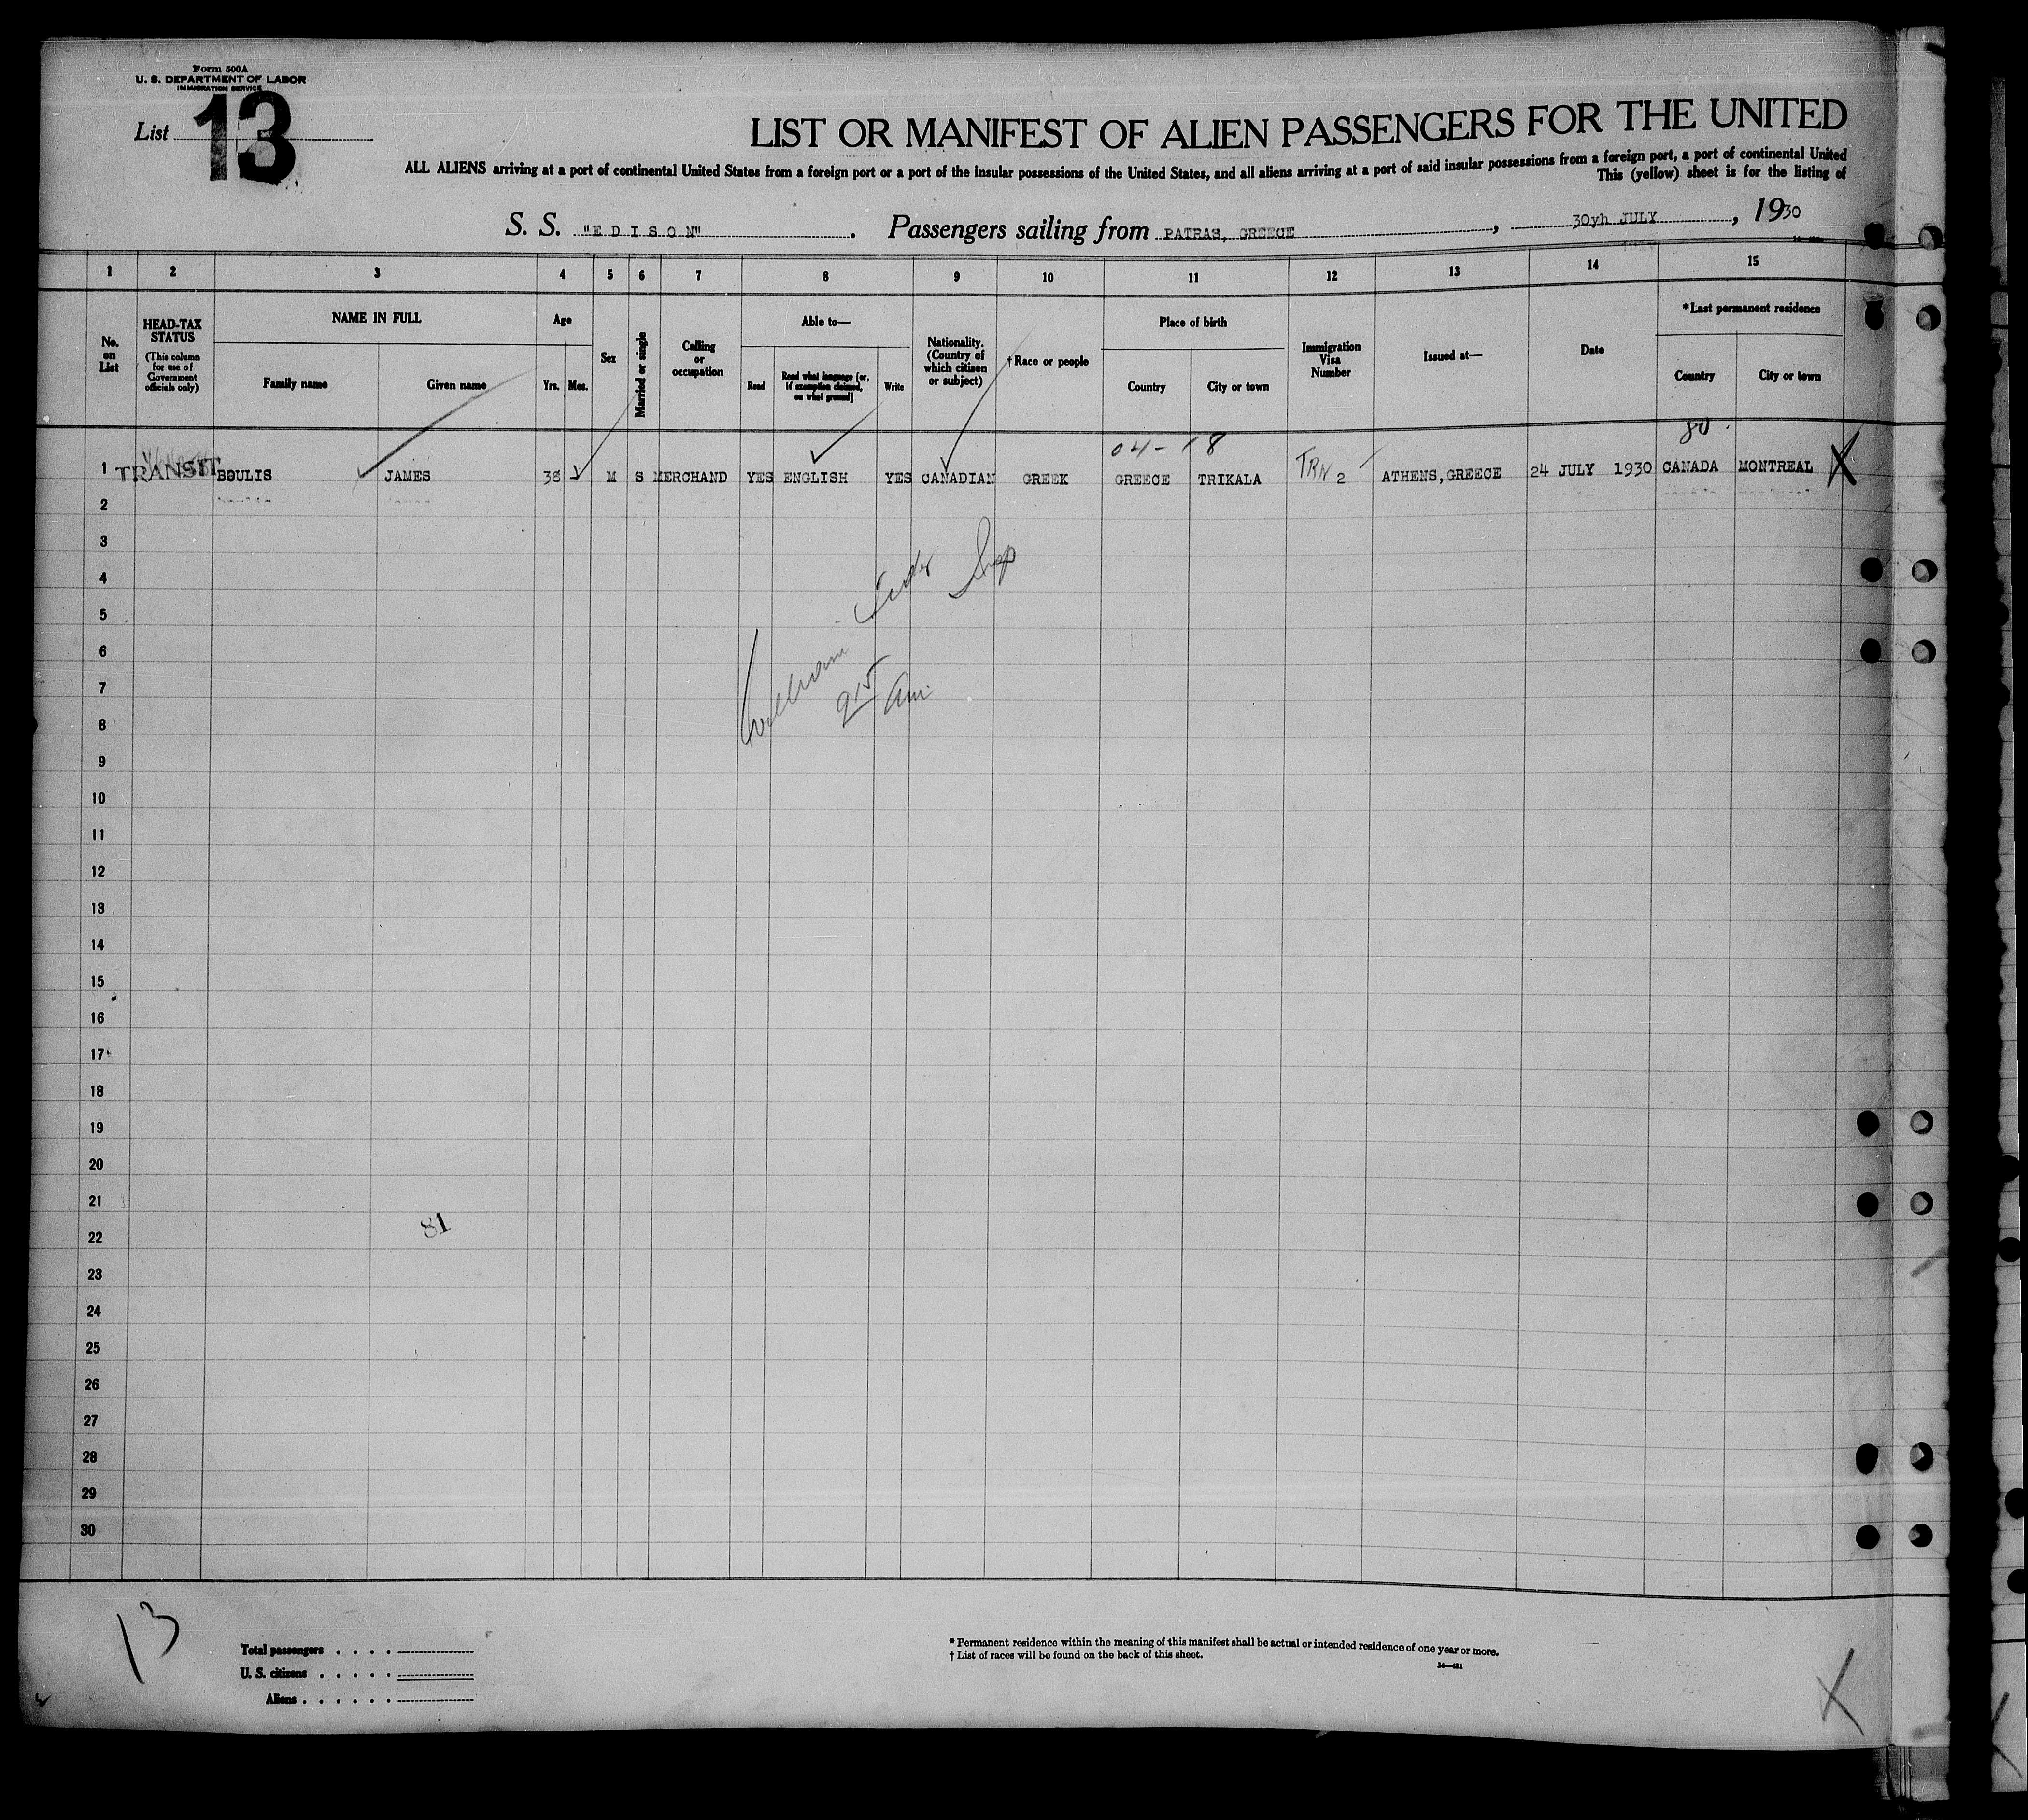 Form 500A
U. S. DEPARTMENT OF LABOR
IMMIGRATION SERVICE
List 13
LIST OR MANIFEST OF ALIEN PASSENGERS FOR THE UNITED
ALL ALIENS arriving at a port of continental United States from a foreign port or a port of the insular possessions of the United States, and all aliens arriving at a port of said insular possessions from a foreign port, a port of continental United
This (yellow) sheet is for the listing of
S. S. "EDISON". Passengers sailing from PATRAS, GREECE, 30yh JULY, 1930
1 2 3 4 5 6 7 8 9 10 11 12 13 14 15
No. on List
HEAD-TAX STATUS
(This column for use of Government officials only)
NAME IN FULL
Family name Given name
Age
Yrs. Mos.
Sex
Married or single
Calling or occupation
Able to—
Read
Read what language [or, if exemption claimed, on what ground]
Write
Nationality. (Country of which citizen or subject)
†Race or people
Place of birth
Country City or town
Immigration Visa Number
Issued at—
Date
*Last permanent residence
Country City or town
04-18
80
1 TRANSIT BOULIS JAMES 38 M S MERCHAND YES ENGLISH YES CANADIAN GREEK GREECE TRIKALA TRN 2 ATHENS, GREECE 24 JULY 1930 CANADA MONTREAL X
2
3
4
5
6
7
8
9
10
11
12
13
14
15
16
17
18
19
20
21
22
23
24
25
26
27
28
29
30
William
Insp
915 am
81
13
Total passengers . . . .
U. S. citizens . . . . .
Aliens . . . . . .
* Permanent residence within the meaning of this manifest shall be actual or intended residence of one year or more.
† List of races will be found on the back of this sheet.
X